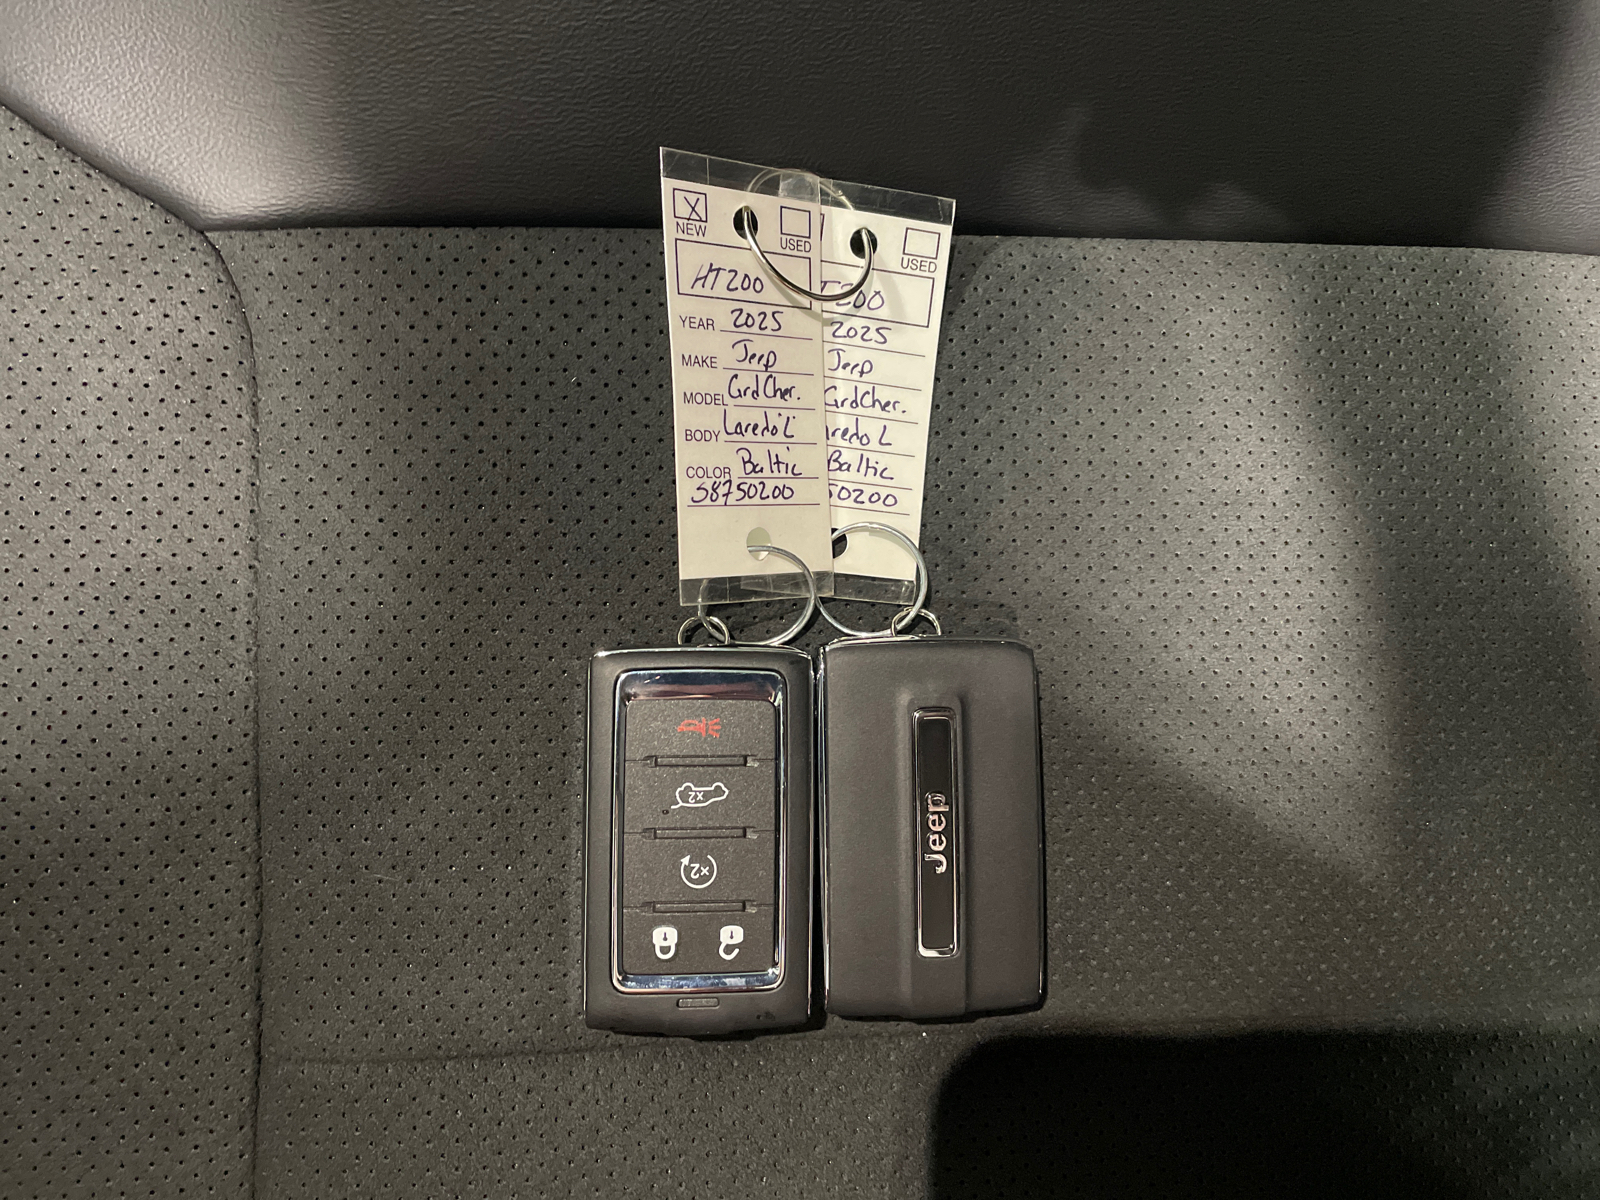 X
NEW
USED
HT200
YEAR 2025
MAKE Jeep
MODEL Grd Cher.
BODY Laredo 'L'
COLOR Baltic
S8750200
USED
T200
2025
Jeep
GrdCher.
aredo L
Baltic
50200
x2
x2
Jeep